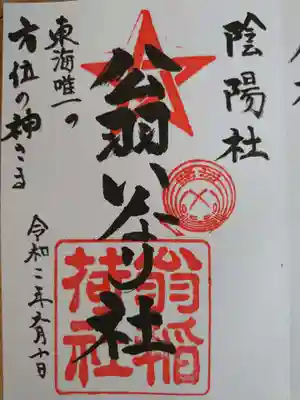 陰陽社
翁いなり社
東海唯一の
方位の神さま
令和二年五月十日
翁稲
荷社